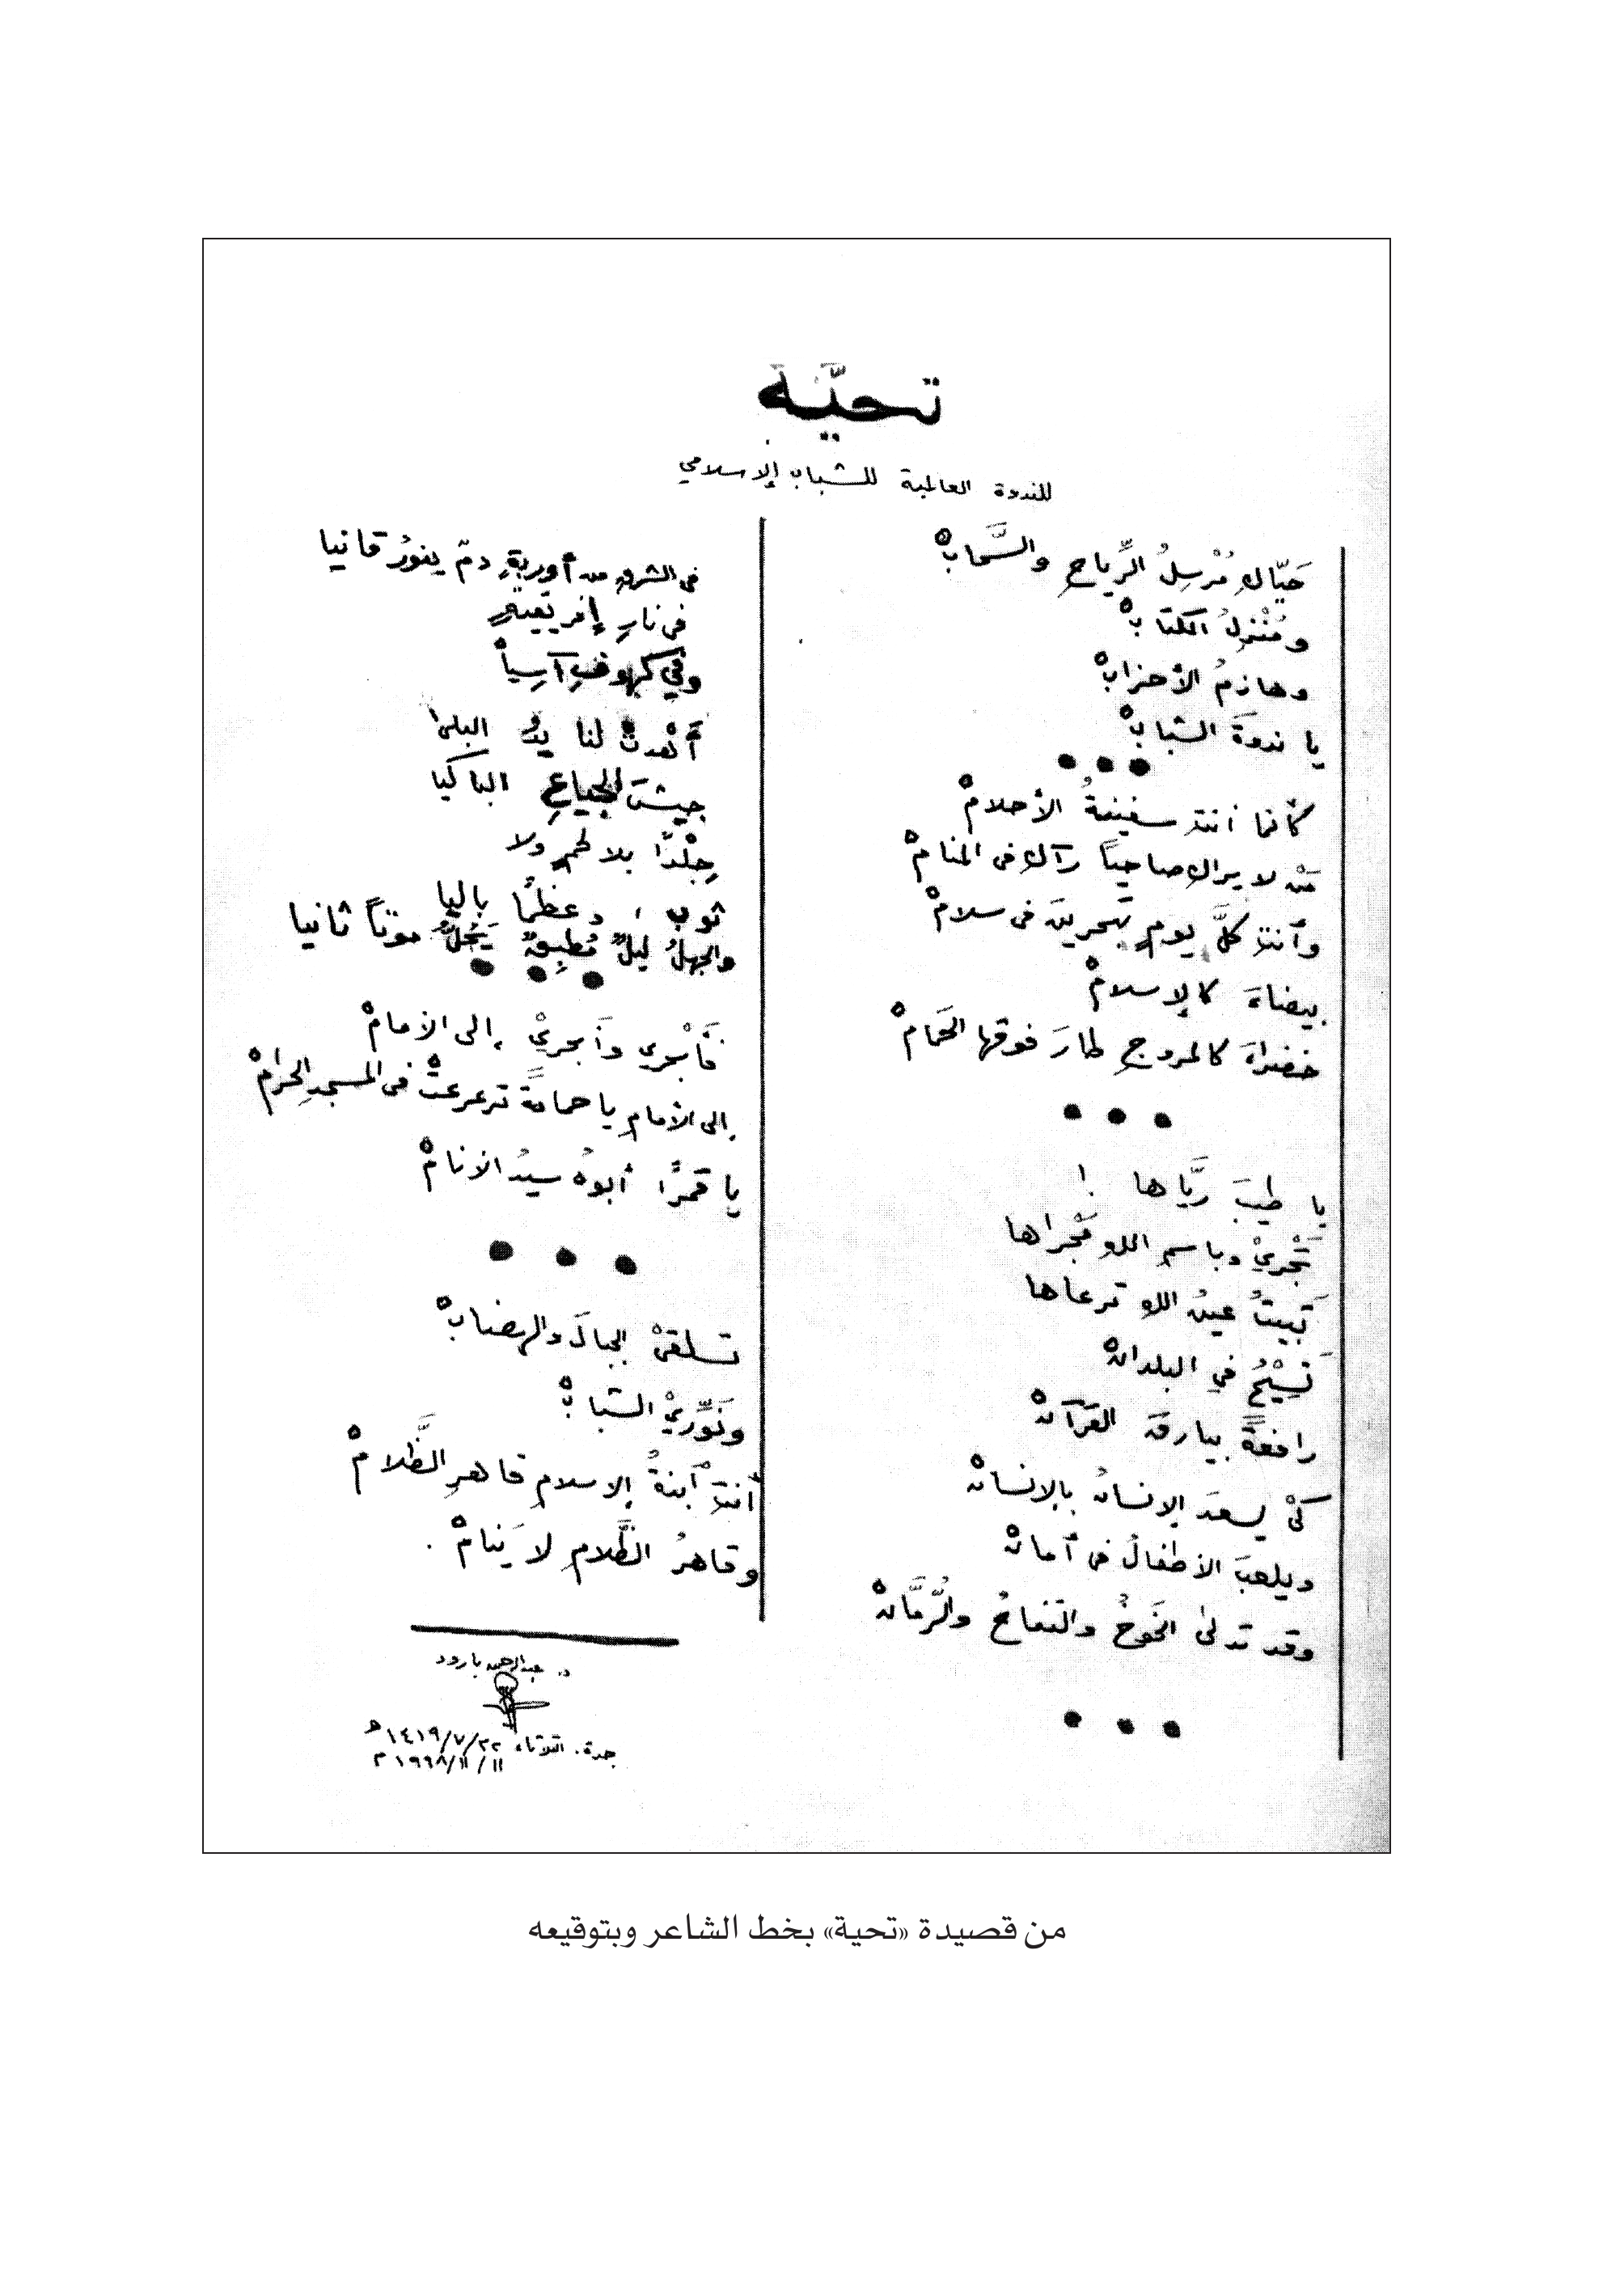 تحيّة
للندوة العالمية للشباب الإسلامي
حَيّاكِ مُرْسِلُ الرِّياحِ والسَّحابْ
ومُنْزِلُ الكتابْ
وهازمُ الأحزابْ
يا ندوةَ الشبابْ
كأنما أنتِ سفينةُ الأحلامْ
مَنْ لا يراكِ صاحياً رآكِ في المنامْ
وأنتِ كلَّ يومٍ تبحرينَ في سلامْ
بيضاءَ كالإسلامْ
خضراءَ كالمروجِ طارَ فوقها الحَمامْ
يا طيبَ رَيَّاها !
تَجْريْ وباسمِ اللهِ مَجْراها
تَبيتُ عينُ اللهِ ترعاها
تَسيْحُ في البلدانْ
رافعةً بيارقَ القرآنْ
كيْ يسعدَ الإنسانُ بالإنسانْ
ويلعبَ الأطفالُ في أمانْ
وقد تدلى الخَوخُ والتفاحُ والرُّمَّانْ
في الشرقِ من أوربةٍ دمٌ ينورُ قانيا
في نارِ إفريقيةٍ
وفي كهوفِ آسِياْ
أَهْدتْ لنا يدُ البلى
جيشَ الجياعِ الباكيا
جِلْدًا بلا لحمٍ ولا
ثوبٍ ، وعظمًا باليا
والجهلُ ليلٌ مُطبِقٌ يَجُلُّ موتاً ثانيا
فأَبْحري وأَبحريْ إلى الأمامْ
إلى الأمامِ يا حمامةً ترعرعتْ في المسجدِ الحرامْ
يا قمرًا أبوهُ سيدُ الأنامْ
تسلقيْ الجبالَ والهضابْ
ونَوِّريْ الشبابْ
أنتِ ابنةُ الإسلامِ قاهرِ الظَّلامْ
وقاهرُ الظَّلامِ لا يَنامْ .
د. عبدالرحمن بارود
جدة. الثلاثاء ٢٢/٧/١٤١٩هـ
١١/١١/١٩٩٨م
من قصيدة «تحية» بخط الشاعر وبتوقيعه